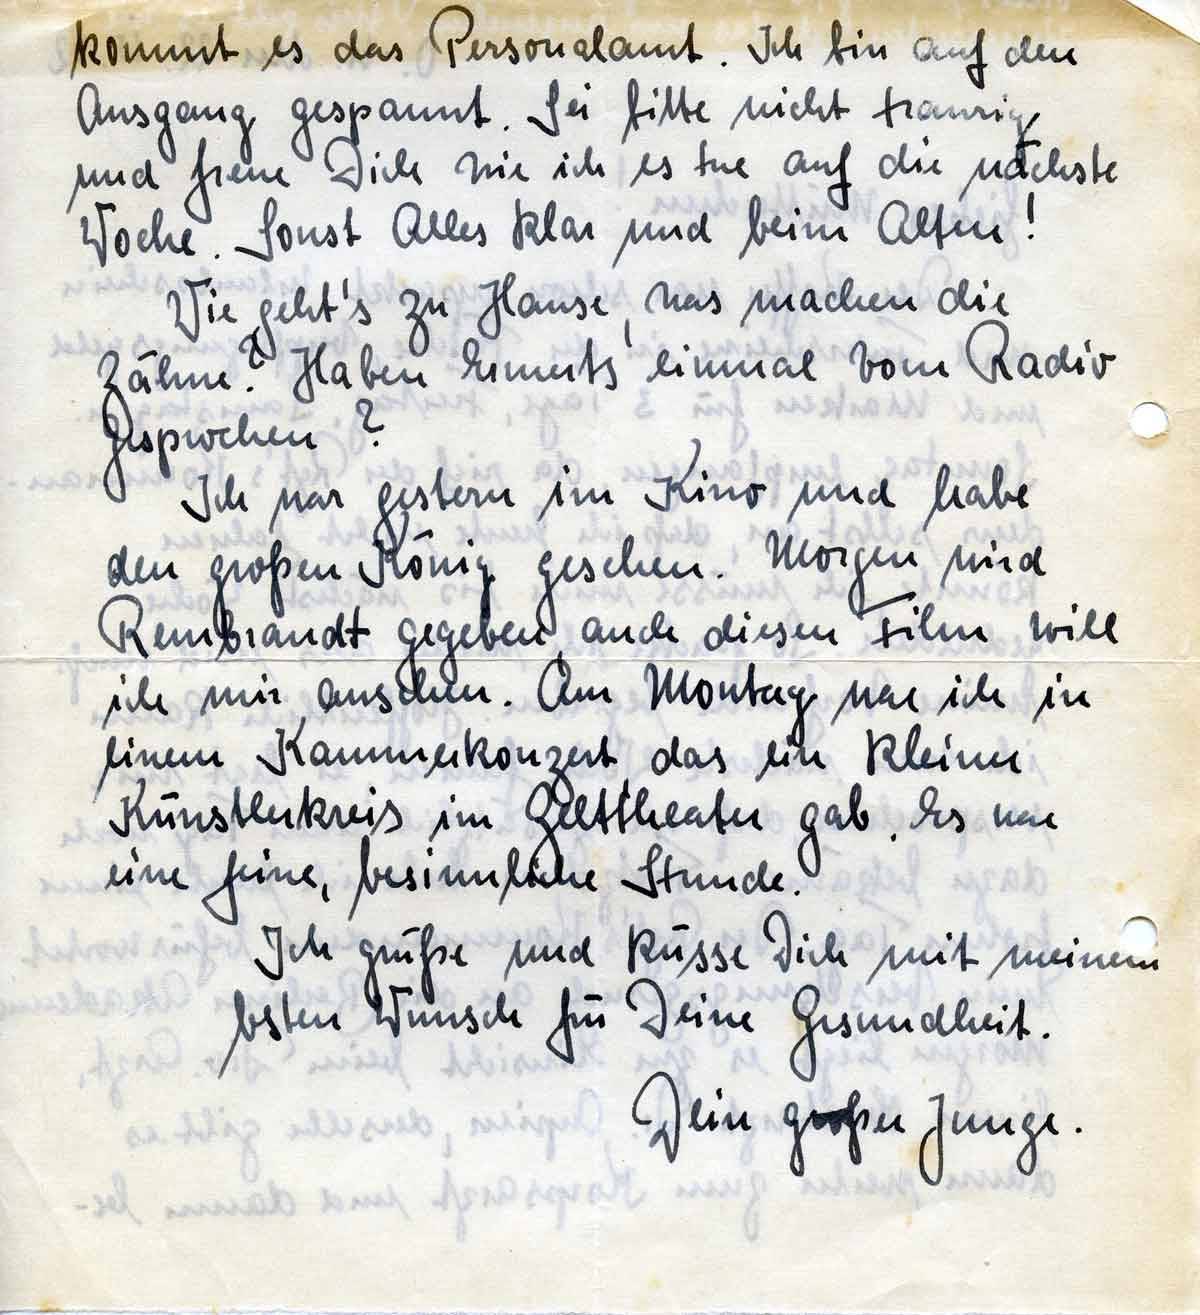 kommt es das Personalamt. Ich bin auf den
Ausgang gespannt. Sei bitte nicht traurig
und freue Dich wie ich es tue auf die nächste
Woche. Sonst Alles klar und beim Alten!
Wie geht's zu Hause, was machen die
Zähne? Haben Ernerts einmal vom Radio
gesprochen?
Ich war gestern im Kino und habe
den großen König gesehen. Morgen wird
Rembrandt gegeben, auch diesen Film will
ich mir ansehen. Am Montag war ich in
einem Kammerkonzert, das ein kleiner
Künstlerkreis im Zelttheater gab. Es war
eine feine, besinnliche Stunde.
Ich grüße und küsse Dich mit meinem
besten Wunsch für Deine Gesundheit.
Dein großer Junge.